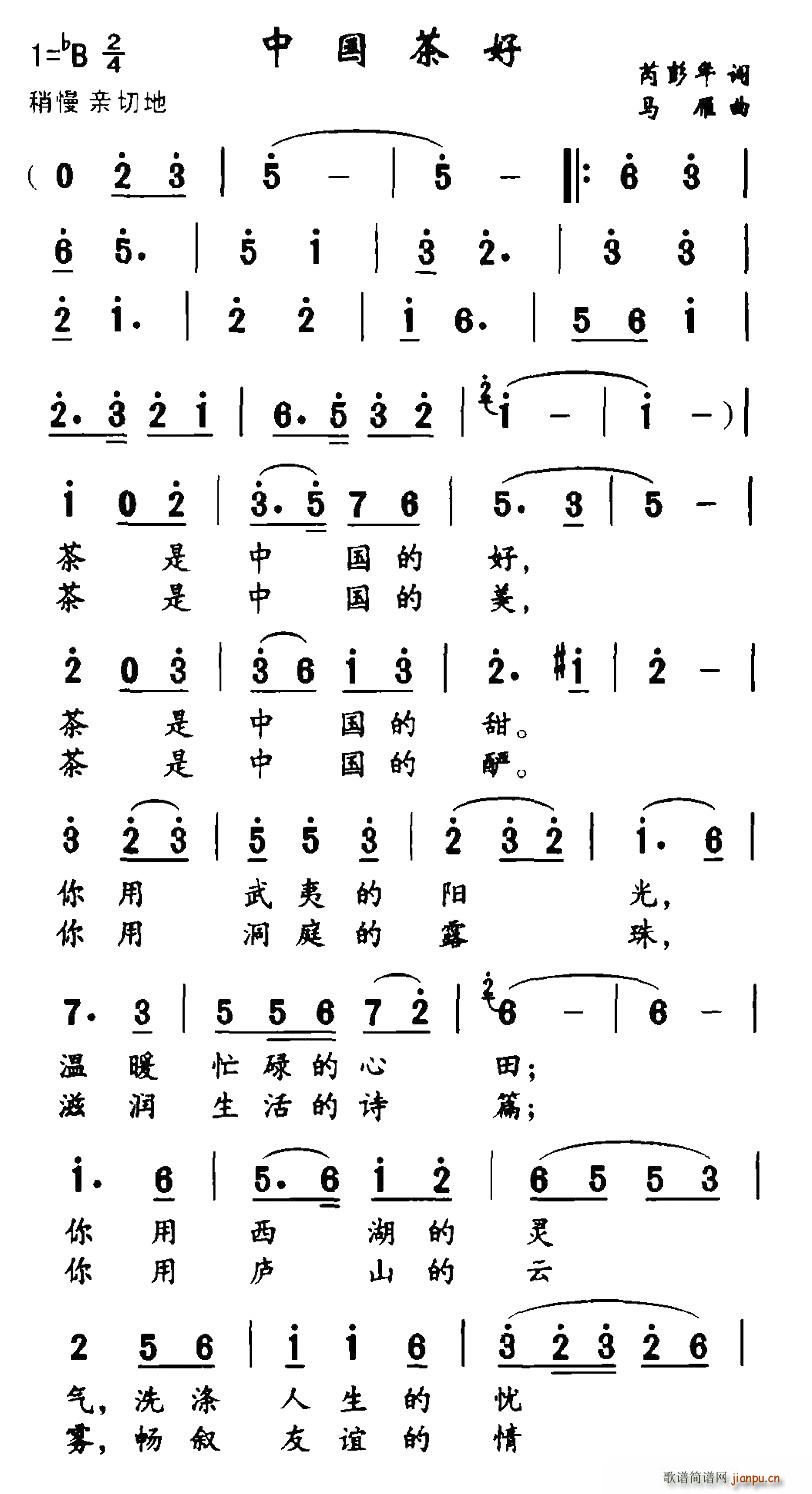 中国茶好
1=♭B 2/4
芮彭年 词
稍慢 亲切地
马雁 曲
( 0 2̇ 3̇ | 5̇ - | 5̇ - ‖: 6̇ 3̇ |
6̇ 5̇. | 5̇ 1̇ | 3̇ 2̇. | 3̇ 3̇ |
2̇ 1̇. | 2̇ 2̇ | 1̇ 6. | 5 6 1̇ |
2̇. 3̇ 2̇ 1̇ | 6. 5̇ 3̇ 2̇ | 2̇ 1̇ - | 1̇ - ) |
1̇ 0 2̇ | 3̇. 5̇ 7 6 | 5. 3 | 5 - |
茶 是 中 国 的 好,
茶 是 中 国 的 美,
2̇ 0 3̇ | 3̇ 6 1̇ 3̇ | 2̇. #1̇ | 2̇ - |
茶 是 中 国 的 甜。
茶 是 中 国 的 酽。
3̇ 2̇ 3̇ | 5̇ 5̇ 3̇ | 2̇ 3̇ 2̇ | 1̇. 6 |
你 用 武 夷 的 阳 光,
你 用 洞 庭 的 露 珠,
7. 3 | 5 5 6 7 2̇ | 2̇ 6 - | 6 - |
温 暖 忙 碌 的 心 田;
滋 润 生 活 的 诗 篇;
1̇. 6 | 5. 6 1̇ 2̇ | 6 5 5 3 |
你 用 西 湖 的 灵
你 用 庐 山 的 云
2 5 6 | 1̇ 1̇ 6 | 3̇ 2̇ 3̇ 2̇ 6 |
气, 洗 涤 人 生 的 忧
雾, 畅 叙 友 谊 的 情
歌谱简谱网 jianpu.cn